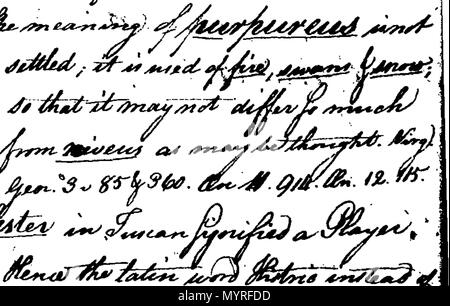 the meaning of purpureus is not
settled; it is used of fire, swans & snow;
so that it may not differ so much
from niveus as may be thought. Virg.
Geor. 3. 85 & 360. Æn 11. 914. Æn. 12. 115.
ster in Tuscan signified a Player.
Hence the latin word Histrio instead of